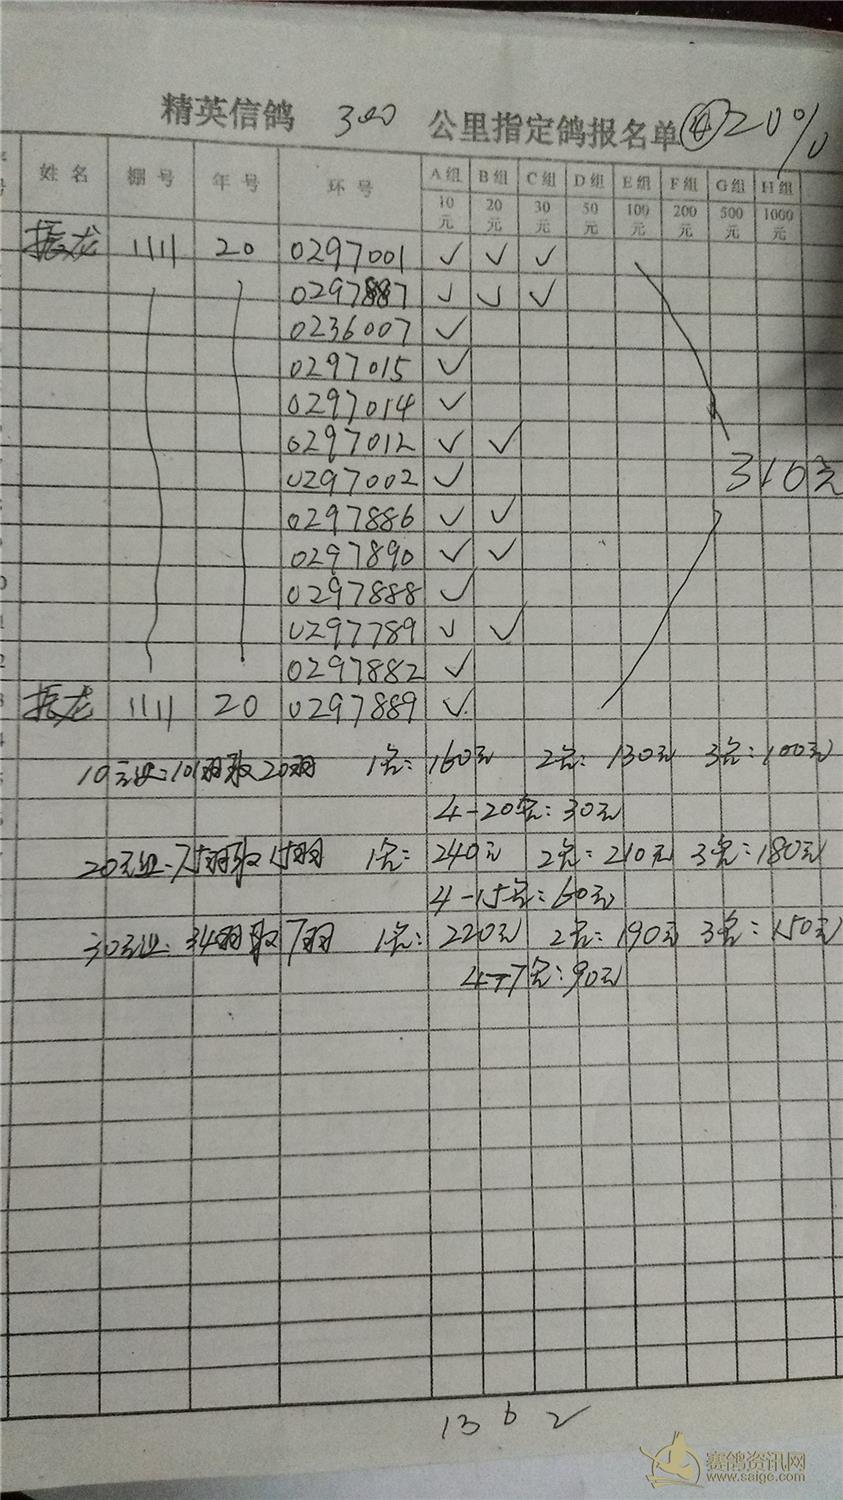 精英信鸽 300 公里指定鸽报名单 ④ 20%
姓名 棚号 年号 环号 A组 B组 C组 D组 E组 F组 G组 H组
10元 20元 30元 50元 100元 200元 500元 1000元
振龙 1111 20 0297001 ✓ ✓ ✓
0297887 ✓ ✓ ✓
0236007 ✓
0297015 ✓
0297014 ✓
0297012 ✓ ✓
0297002 ✓
310元
0297886 ✓ ✓
0297890 ✓ ✓
0297888 ✓
0297789 ✓ ✓
0297882 ✓
振龙 1111 20 0297889 ✓
10元组:101羽取20羽 1名:160元 2名:130元 3名:100元
4-20名:30元
20元组:75羽取15羽 1名:240元 2名:210元 3名:180元
4-15名:60元
30元组:34羽取7羽 1名:220元 2名:190元 3名:150元
4-7名:90元
13 6 2
赛鸽资讯网
www.saige.com